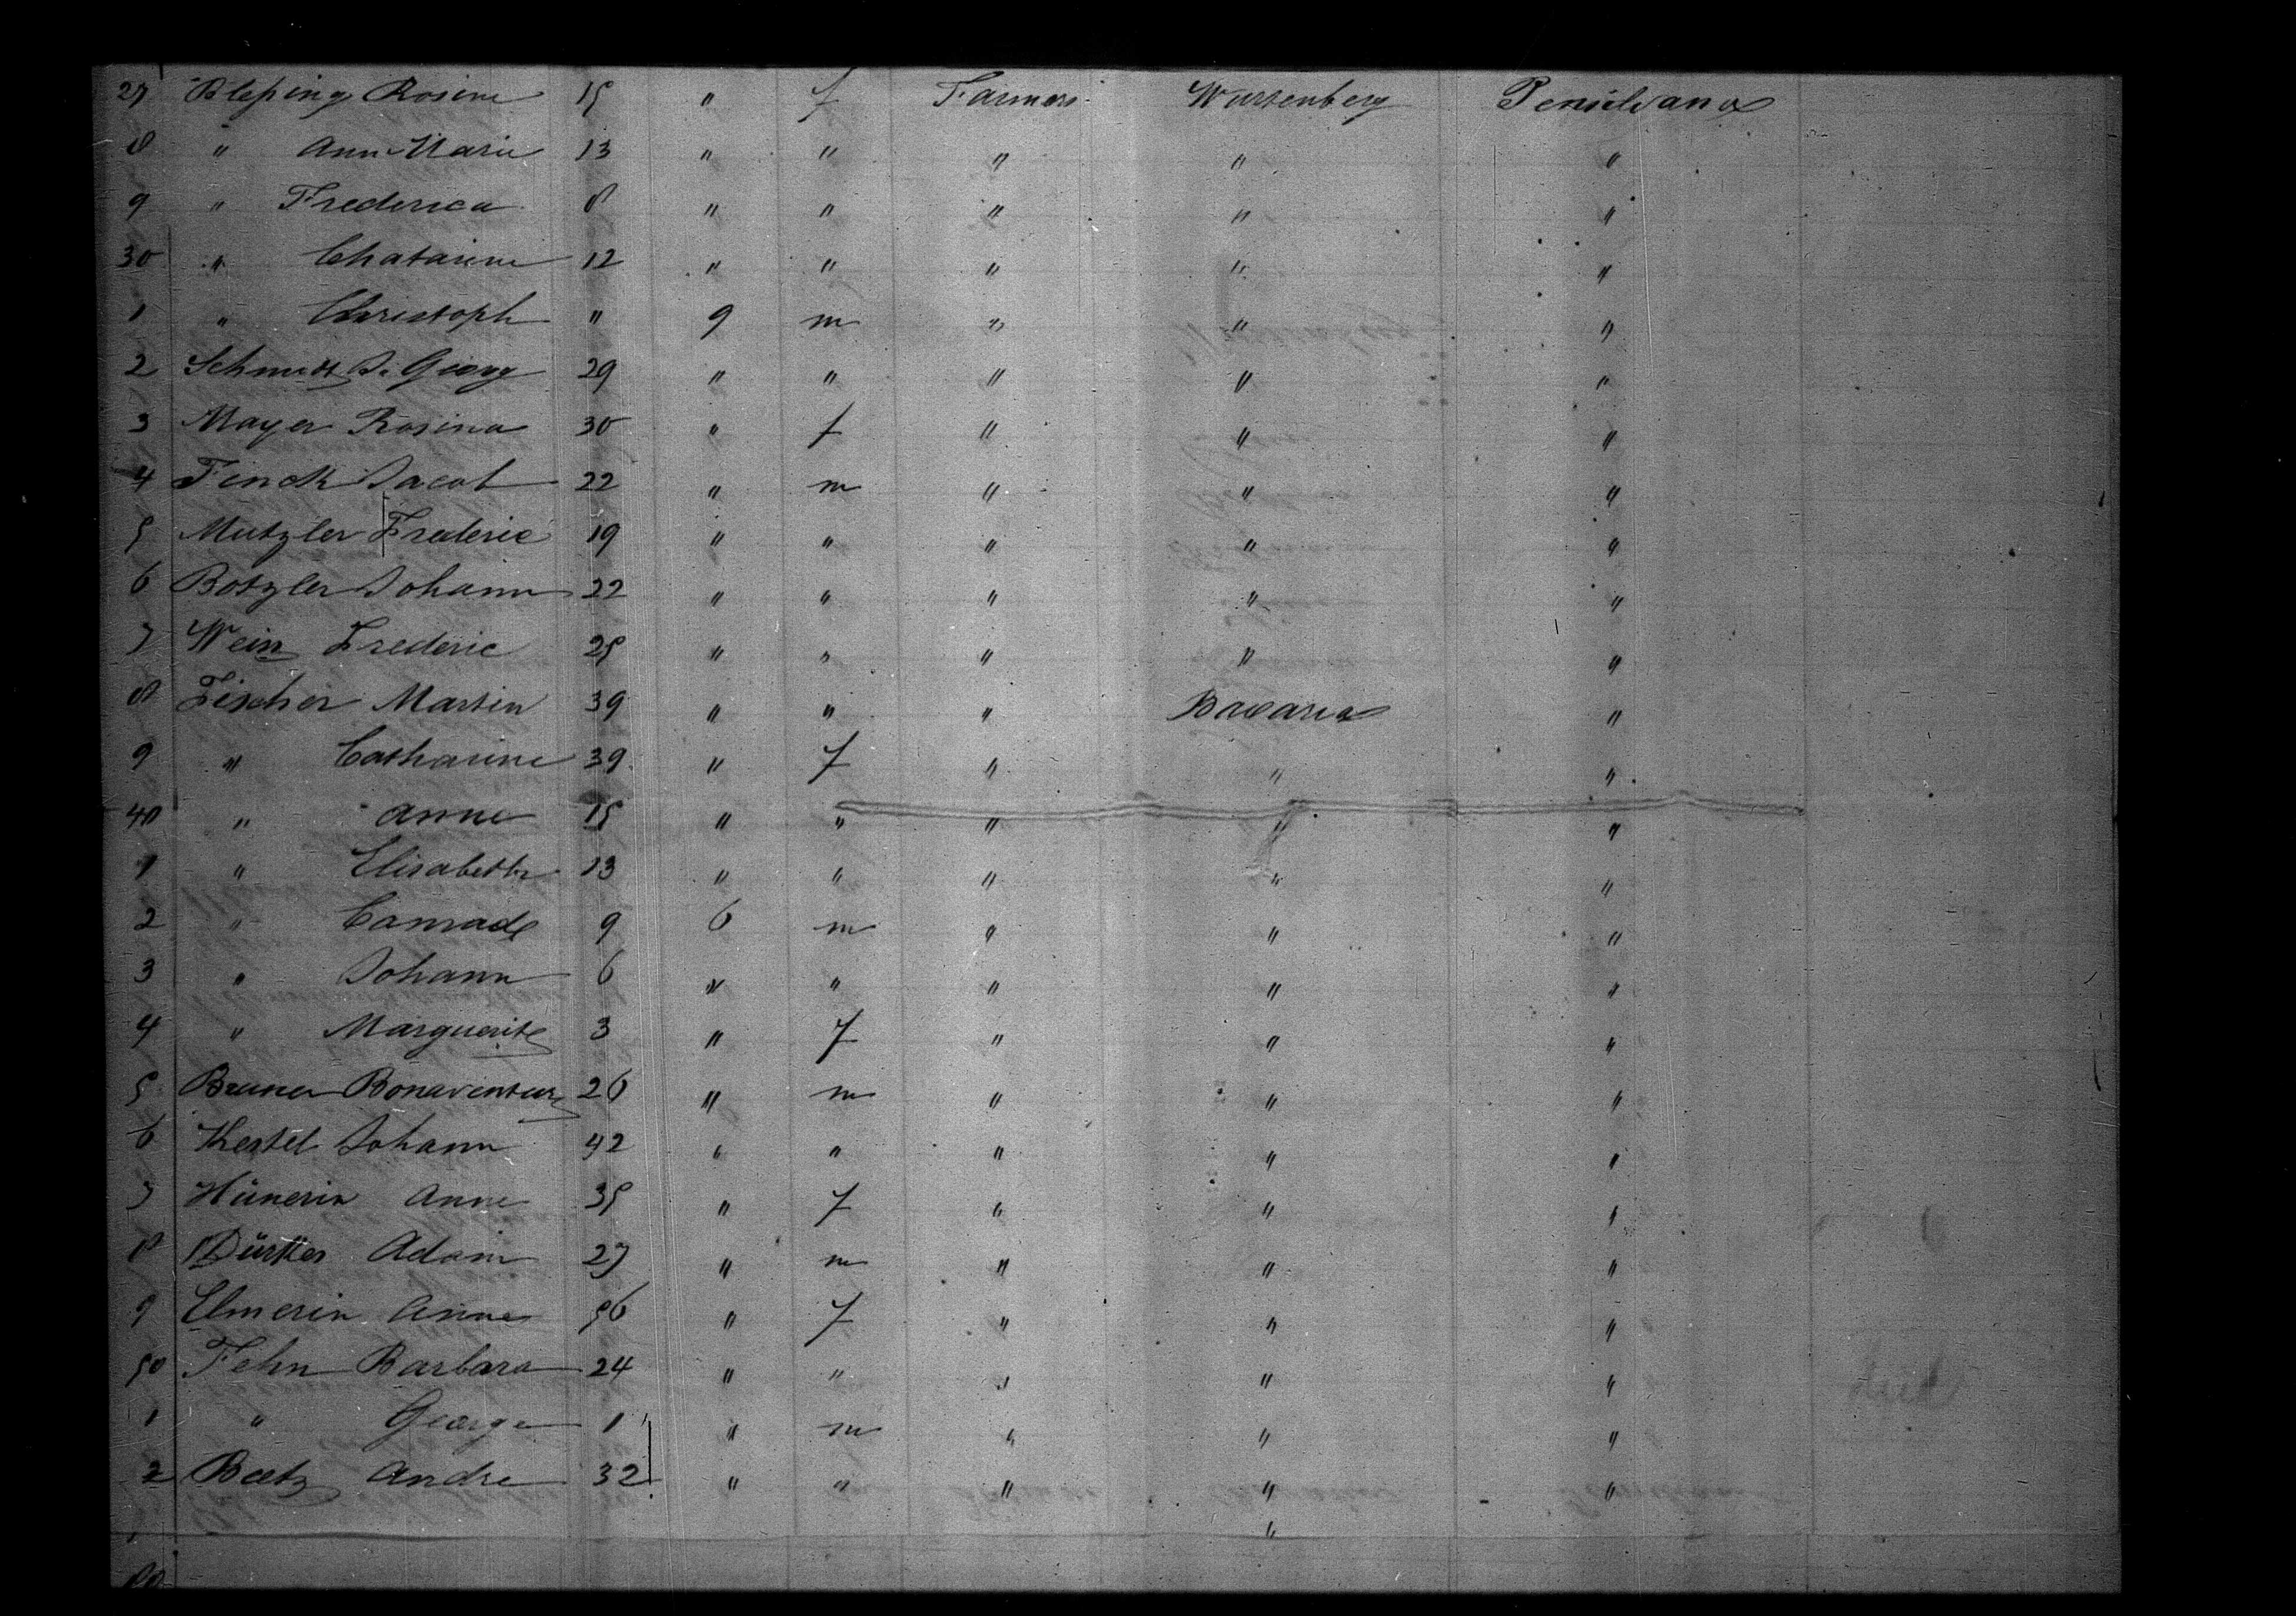 27 Bleßing Rosine 15 " f Farmers Wurtenberg Pensilvana
8 " Ann Marie 13 " " " " "
9 " Frederica 8 " " " " "
30 " Chatarine 12 " " " " "
1 " Christoph " 9 m " " "
2 Schmidt J. Georg 29 " " " " "
3 Mayer Rosina 30 " f " " "
4 Finck Jacob 22 " m " " "
5 Mutzler Frederic 19 " " " " "
6 Botzler Johann 22 " " " " "
7 Wein Frederic 25 " " " " "
8 Fischer Martin 39 " " " Bavaria "
9 " Catharine 39 " f " " "
40 " Anne 15 " " " " "
1 " Elisabeth 13 " " " " "
2 " Conrade 9 6 m " " "
3 " Johann 6 " " " " "
4 " Marguerite 3 " f " " "
5 Bruner Bonaventur 26 " m " " "
6 Kestel Johann 42 " " " " "
7 Hünerin Anne 35 " f " " "
8 Dürker Adam 27 " m " " "
9 Elmerin Anne 56 " f " " "
50 Fehn Barbara 24 " " " " "
1 " George 1 " m " " "
2 Baetz Andre 32 " " " " "
"